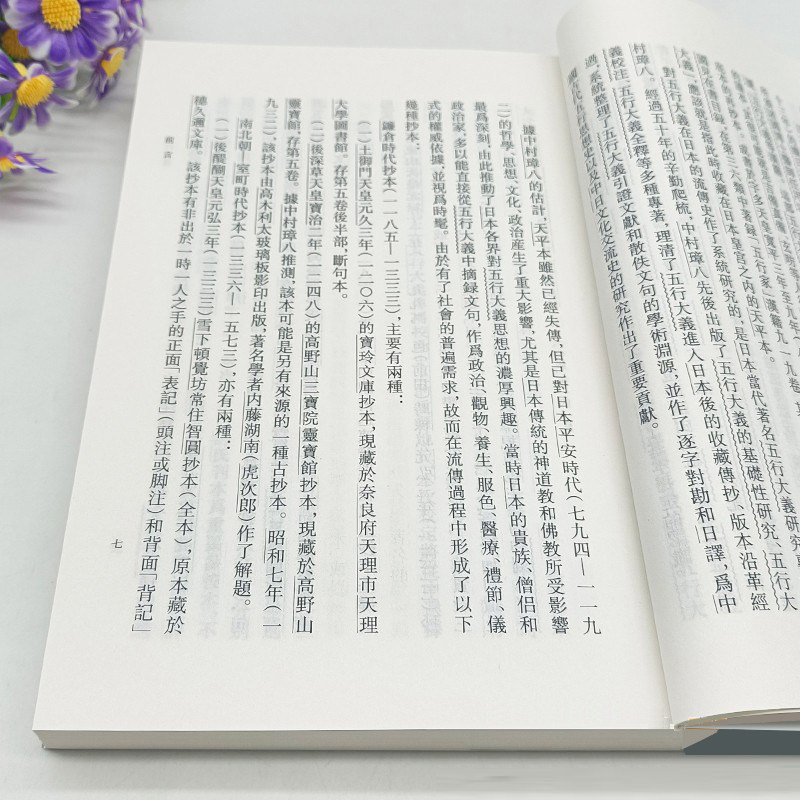 大義,應該就是指此時收藏在日本皇宮之内的天平本。
對五行大義在日本的流傳史作了系統研究的,是日本當代著名五行大義研究
村璋八。經過五十年的辛勤爬梳,中村璋八先後出版了五行大義的基礎性研究、五行大
義校注、五行大義全釋等多種專著,理清了五行大義進入日本後的收藏傳抄、版本沿革經
過,系統整理了五行大義引證文獻和散佚文句的學術淵源,並作了逐字對勘和日譯,爲中
國古代五行思想史以及中日文化交流史的研究作出了重要貢獻。
據中村璋八的估計,天平本雖然已經失傳,但已對日本平安時代(七九四—一一九
二)的哲學、思想、文化、政治産生了重大影響,尤其是日本傳統的神道教和佛教所受影響
最爲深刻,由此推動了日本各界對五行大義思想的濃厚興趣。當時日本的貴族、僧侶和
政治家,多以能直接從五行大義中摘録文句,作爲政治、觀物、養生、服色、醫療、禮節、儀
式的權威依據,並視爲時髦。由於有了社會的普遍需求,故而在流傳過程中形成了以下
幾種抄本:
鎌倉時代抄本(一一八五—一三三三),主要有兩種:
(一)土御門天皇元久三年(一二〇六)的寶玲文庫抄本,現藏於奈良府天理市天理
大學圖書館。存第五卷後半部,斷句本。
(二)後深草天皇寶治二年(一二四八)的高野山三寶院靈寶館抄本,現藏於高野山
靈寶館。存第五卷。據中村璋八推測,該本可能是另有來源的一種古抄本。昭和七年(一
九三二),該抄本由高木利太玻璃板影印出版,著名學者内藤湖南(虎次郎)作了解題。
南北朝—室町時代抄本(一三三六—一五七三),亦有兩種:
(一)後醍醐天皇元弘三年(一三三三)雪下頓覺坊常住智圓抄本(全本),原本藏於
穗久邇文庫。該抄本有非出於一時一人之手的正面「表記」(頭注或脚注)和背面「背記」
前言
七